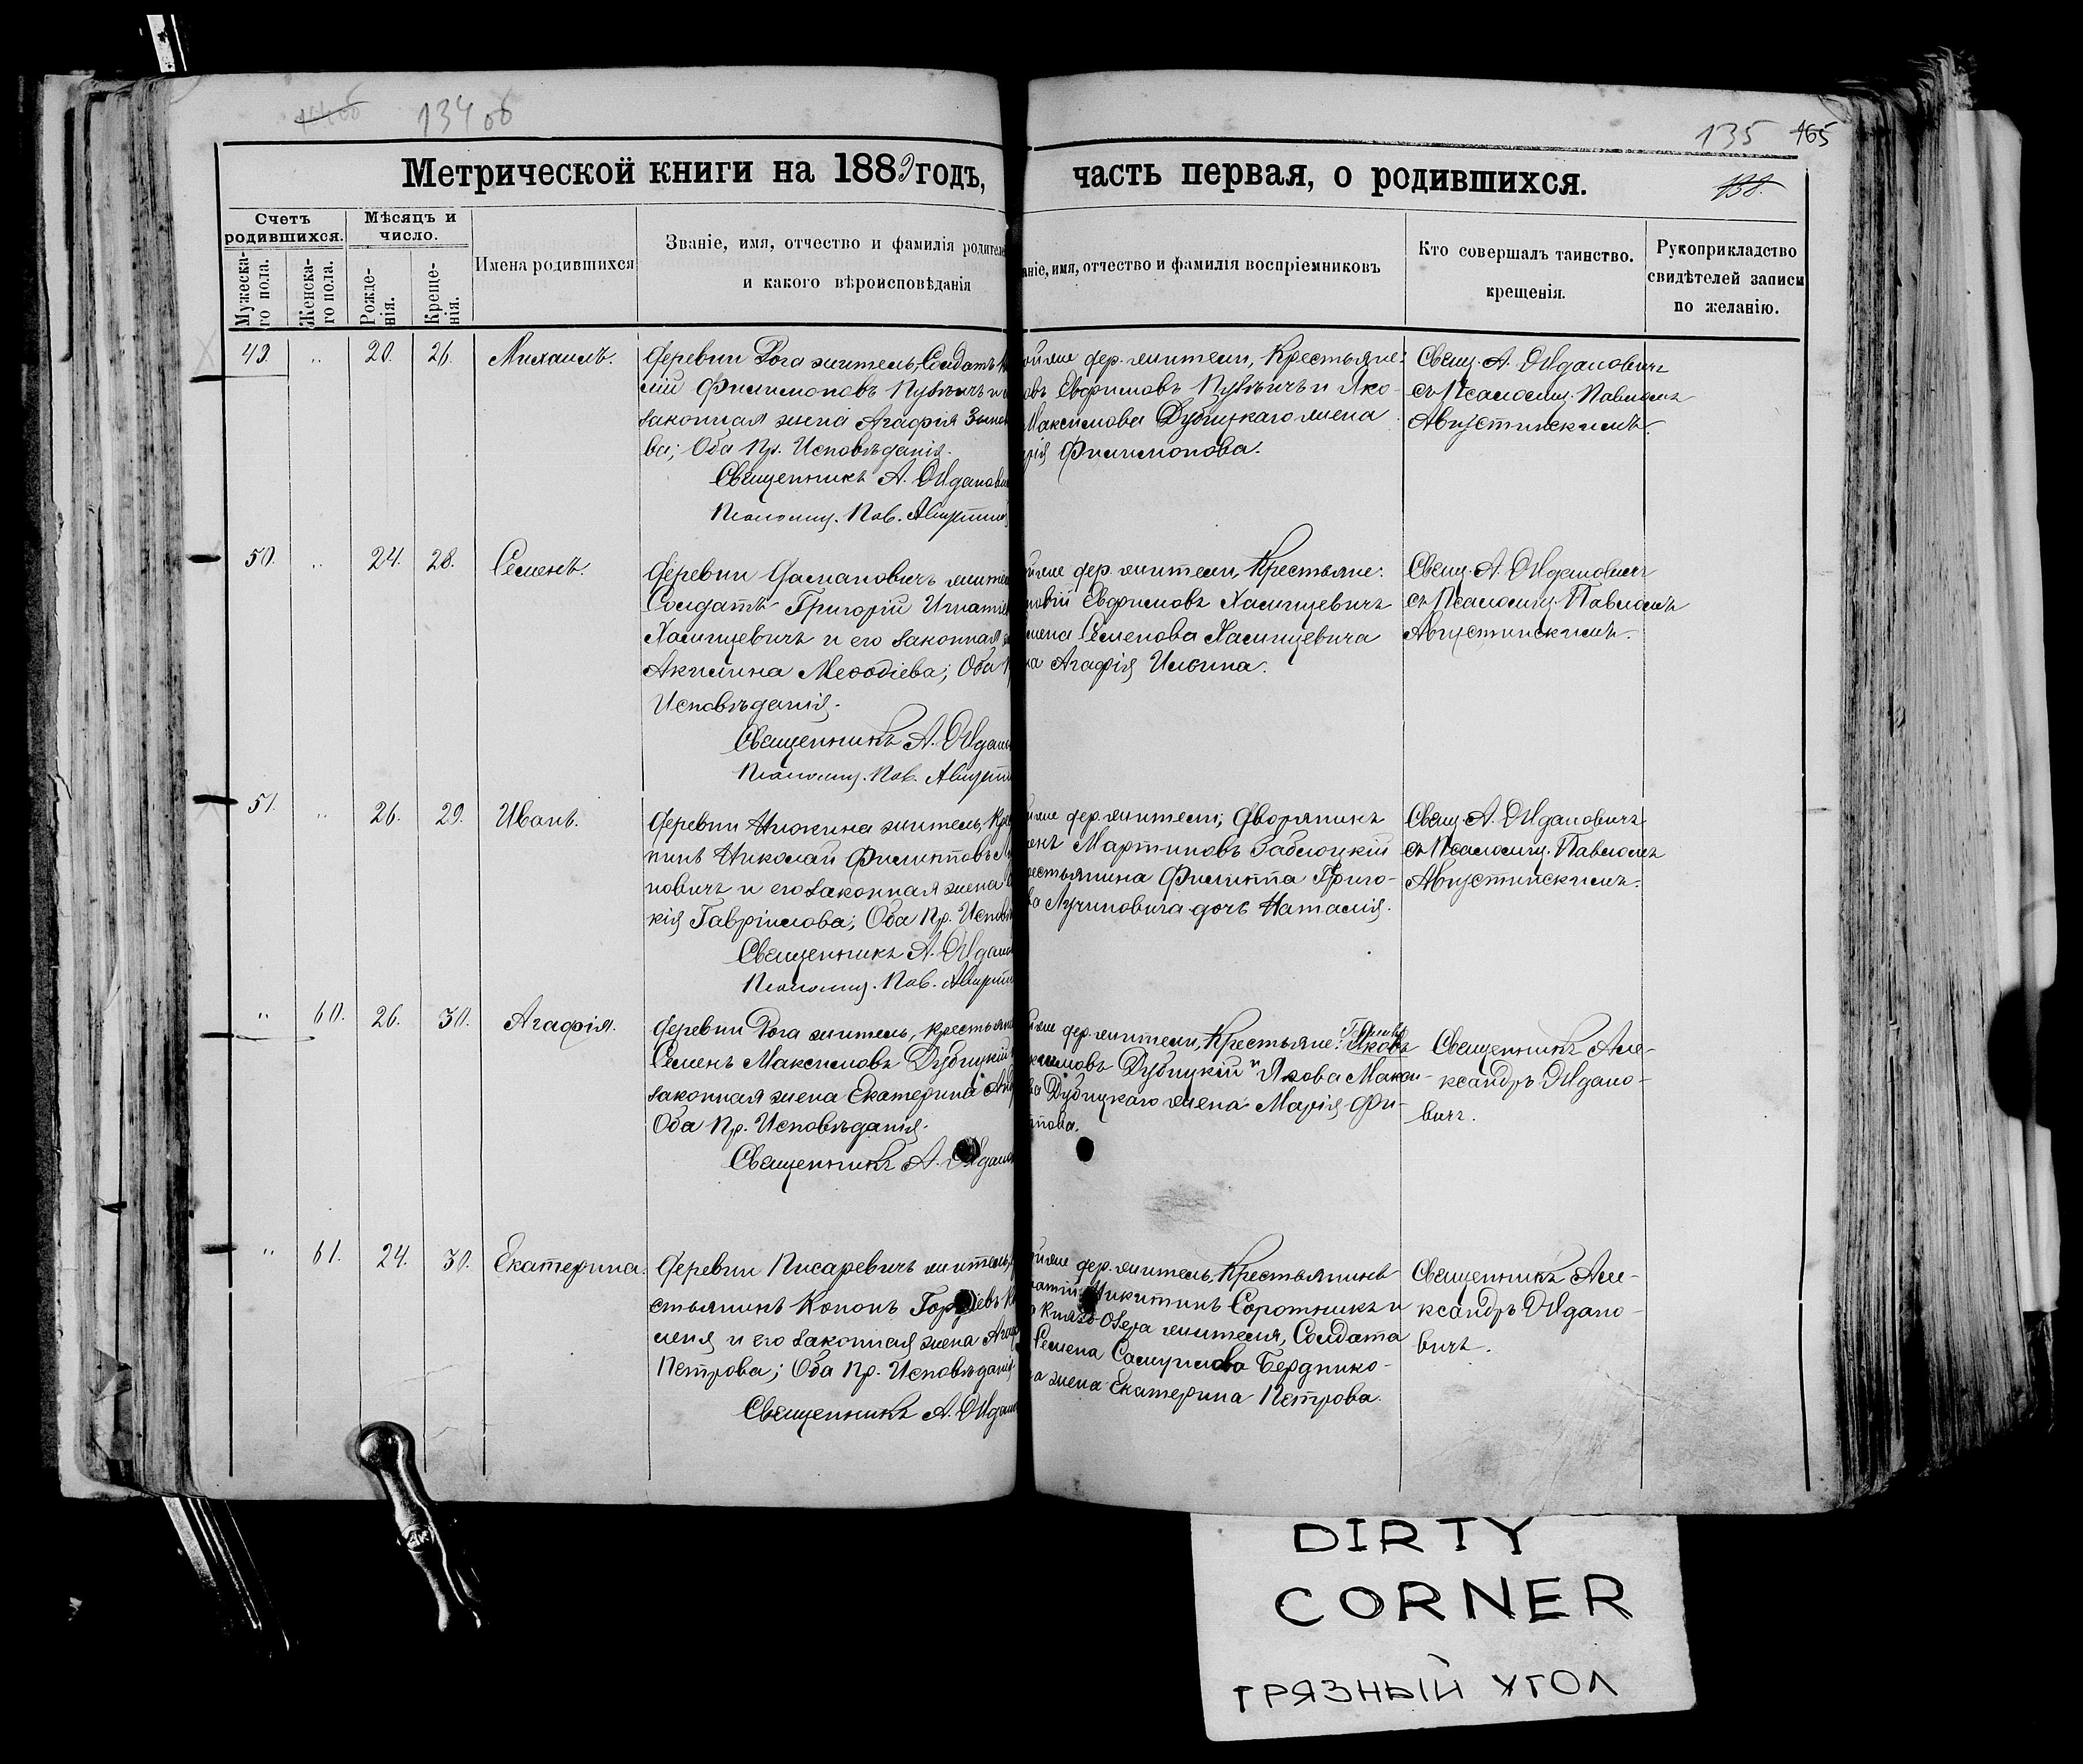 134 об
135 165
138.
Метрической книги на 1889 годъ, часть первая, о родившихся.
Счетъ родившихся.
Мѣсяцъ и число.
Мужеска-го пола.
Женска-го пола.
Рожде-нія.
Креще-нія.
Имена родившихся
Званіе, имя, отчество и фамилія родителе
и какого вѣроисповѣданія
аніе, имя, отчество и фамилія воспріемниковъ
Кто совершалъ таинство.
крещенія.
Рукоприкладство
свидѣтелей записи
по желанію.
49. " 20. 26. Михаилъ.
Деревни Рога житель, Солдатъ
лій Филимоновъ и
законная жена Агафія
ва; Оба Пр. Исповѣданія.
Священникъ А. Жданови
Псаломщ. Пав. Августин
дер. жители, Крестьяне:
Евфимовъ и Яко-
Максимова Дубицкаго жена
рія Филимонова.
Свящ. А. Ждановичъ
съ Псаломщ. Павломъ
Августинскимъ.
50. " 24. 28. Семенъ.
Деревни жите
Солдатъ Григорій Игнатіе
Халимцевичъ и его законная ж
Акилина Меѳодіева; Оба П
Исповѣданія.
Священникъ А. Ждано
Псаломщ. Пав. Августи
дер. жители, Крестьяне:
Евфимовъ Халимцевичъ
Семенова Халимцевича
на Агафія Ильина.
Свящ. А. Ждановичъ
съ Псаломщ. Павломъ
Августинскимъ.
51. " 26. 29. Иванъ.
Деревни житель, Кре
нинъ Николай Филипповъ
новичъ и его законная жена
кія Гавріилова; Оба Пр. Испов
Священникъ А. Ждано
Псаломщ. Пав. Августи
дер. жители; Дворянинъ
Мартиновъ Заблоцкій
рестьянина Филиппа Григо-
ва Лучиновича дочь Наталія.
Свящ. А. Ждановичъ
съ Псаломщ. Павломъ
Августинскимъ.
" 60. 26. 30. Агафія.
Деревни Рога житель, крестьяни
Семенъ Максимовъ Дубицкій
законная жена Екатерина
Оба Пр. Исповѣданія.
Священникъ А. Ждано
дер. жители, Крестьяне: Яковъ
ксимовъ Дубицкій и Якова Макси-
ва Дубицкаго жена Марія Фи-
ппова.
Священникъ Але-
ксандръ Ждано-
вичъ.
" 61. 24. 30. Екатерина.
Деревни Писаревичъ житель,
стьянинъ Кононъ
меня и его законная жена
Петрова; Оба Пр. Исповѣданія
Священникъ А. Ждано
дер. житель, Крестьянинъ
Никитинъ Соротникъ и
Князь-Озера жителя, Солдата
Семена Самуилова Бердико-
а жена Екатерина Петрова.
Священникъ Але-
ксандръ Ждано-
вичъ.
DIRTY
CORNER
ГРЯЗНЫЙ УГОЛ